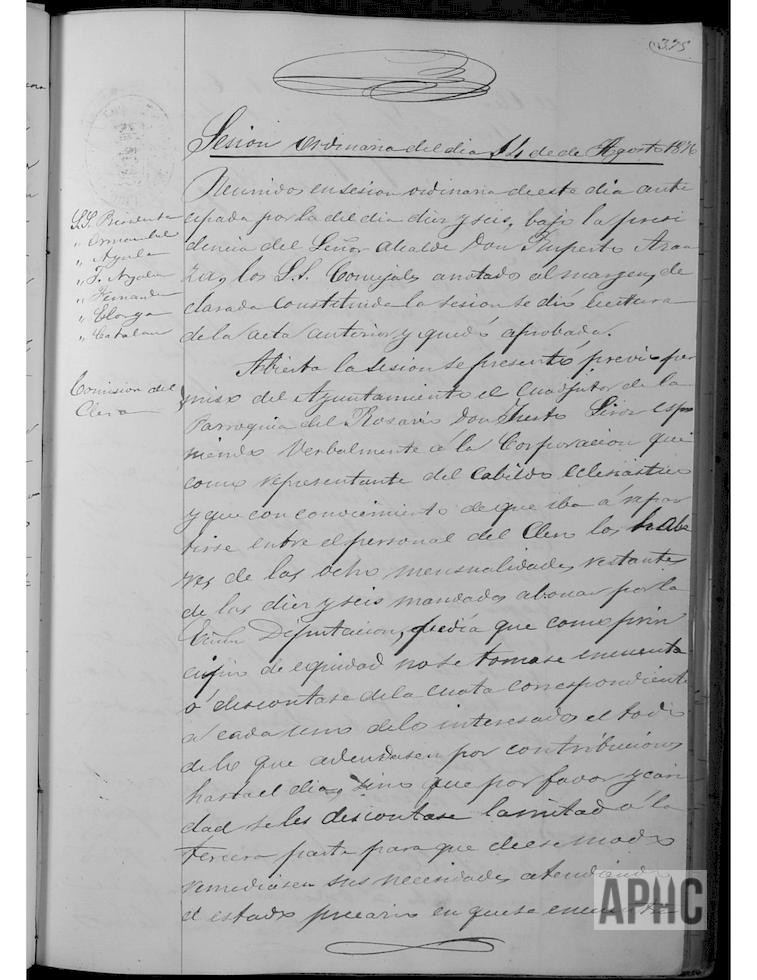 375
Sesion ordinaria del dia 14 de de Agosto 1876
Reunidos en sesion ordinaria de este dia anti
cipada por la del dia diez y seis, bajo la presi
dencia del Señor Alcalde Don Ruperto Aran
za, los S.S. Concejales anotados al margen, de
clarada constituida la sesion se dió lectura
de la acta anterior y quedó aprobada.
S.S. Bienvenido
" Armendol
" Ayala
" F. Ayala
" Fernandez
" Elorga
" Catalan
Comision del
Clero
Abierta la sesion se presentó previo per
miso del Ayuntamiento el Coadjutor de la
Parroquia del Rosario Don Justo espo
niendo verbalmente á la Corporacion que
como representante del Cabildo eclesiastico
y que con conocimiento de que iba á repar
tirse entre el personal del Clero los habe
res de las ocho mensualidades restantes
de las diez y seis mandadas abonar por la
Exma Diputacion, pedia que como prin
cipio de equidad no se tomase en cuenta
ó descontase de la cuota correspondiente
á cada uno de los interesados el todo
de lo que adeudasen por contribuciones
hasta el dia, sino que por favor y cari
dad se les descontase la mitad ó la
tercera parte para que de ese modo
remediasen sus necesidades atendiendo
el estado precario en que se encuentra
APHC